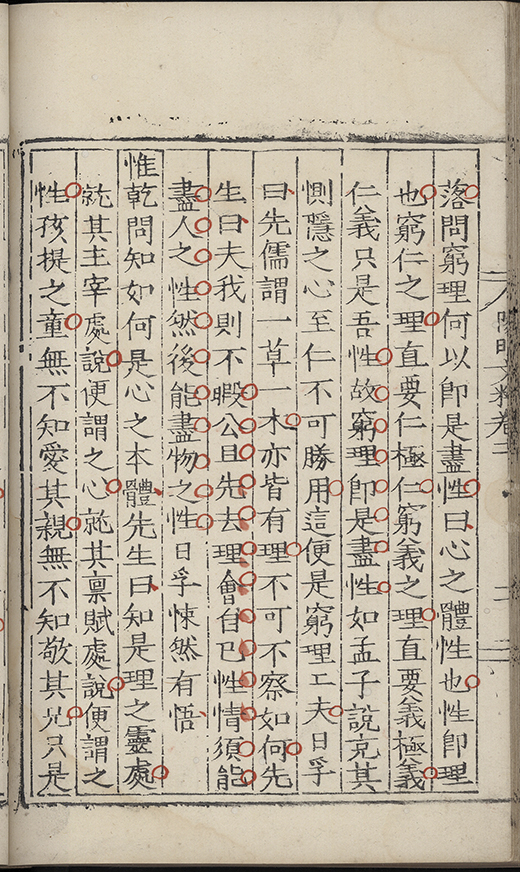 落問窮理何以即是盡性曰心之體性也性即理
也窮仁之理直要仁極仁窮義之理直要義極義
仁義只是吾性故窮理即是盡性如孟子說充其
惻隱之心至仁不可勝用這便是窮理工夫日孚
曰先儒謂一草一木亦皆有理不可不察如何先
生曰夫我則不暇公且先去理會自己性情須能
盡人之性然後能盡物之性日孚悚然有悟
惟乾問知如何是心之本體先生曰知是理之靈處
就其主宰處說便謂之心就其禀賦處說便謂之
性孩提之童無不知愛其親無不知敬其兄只是